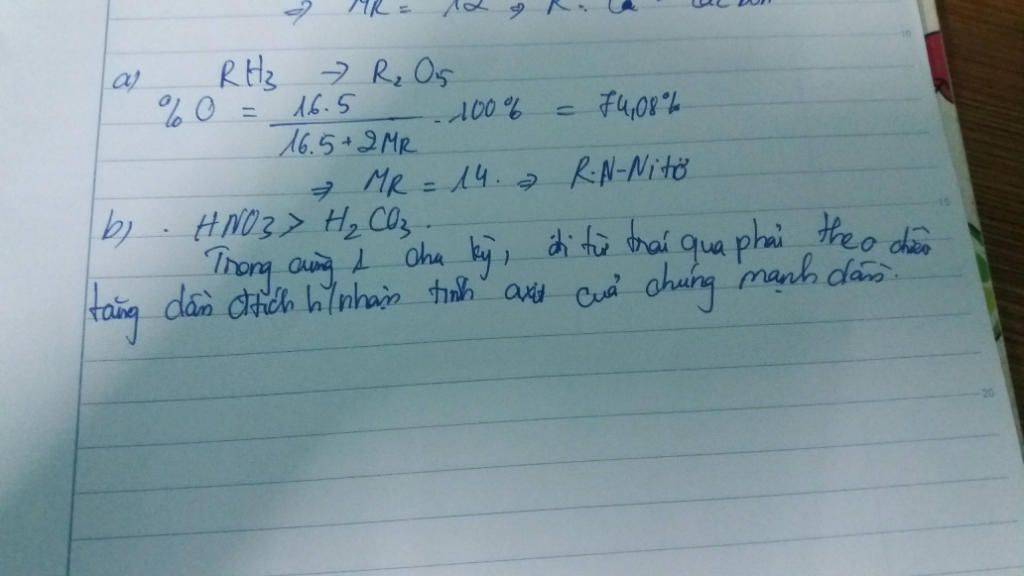 ⇒ MR = 12 ⇒ R:
a) RH3 → R2O5
%O = 16.5 / 16.5+2MR . 100% = 74,08%
⇒ MR = 14. ⇒ R:N-Nitơ
b) . HNO3 > H2CO3.
Trong cùng 1 chu kỳ, đi từ trái qua phải theo chiều
tăng dần đtích h/nhân tính axit của chúng mạnh dần.
10
15
20